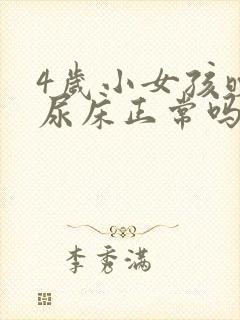 4歲小女孩
尿床正常吗
李秀满